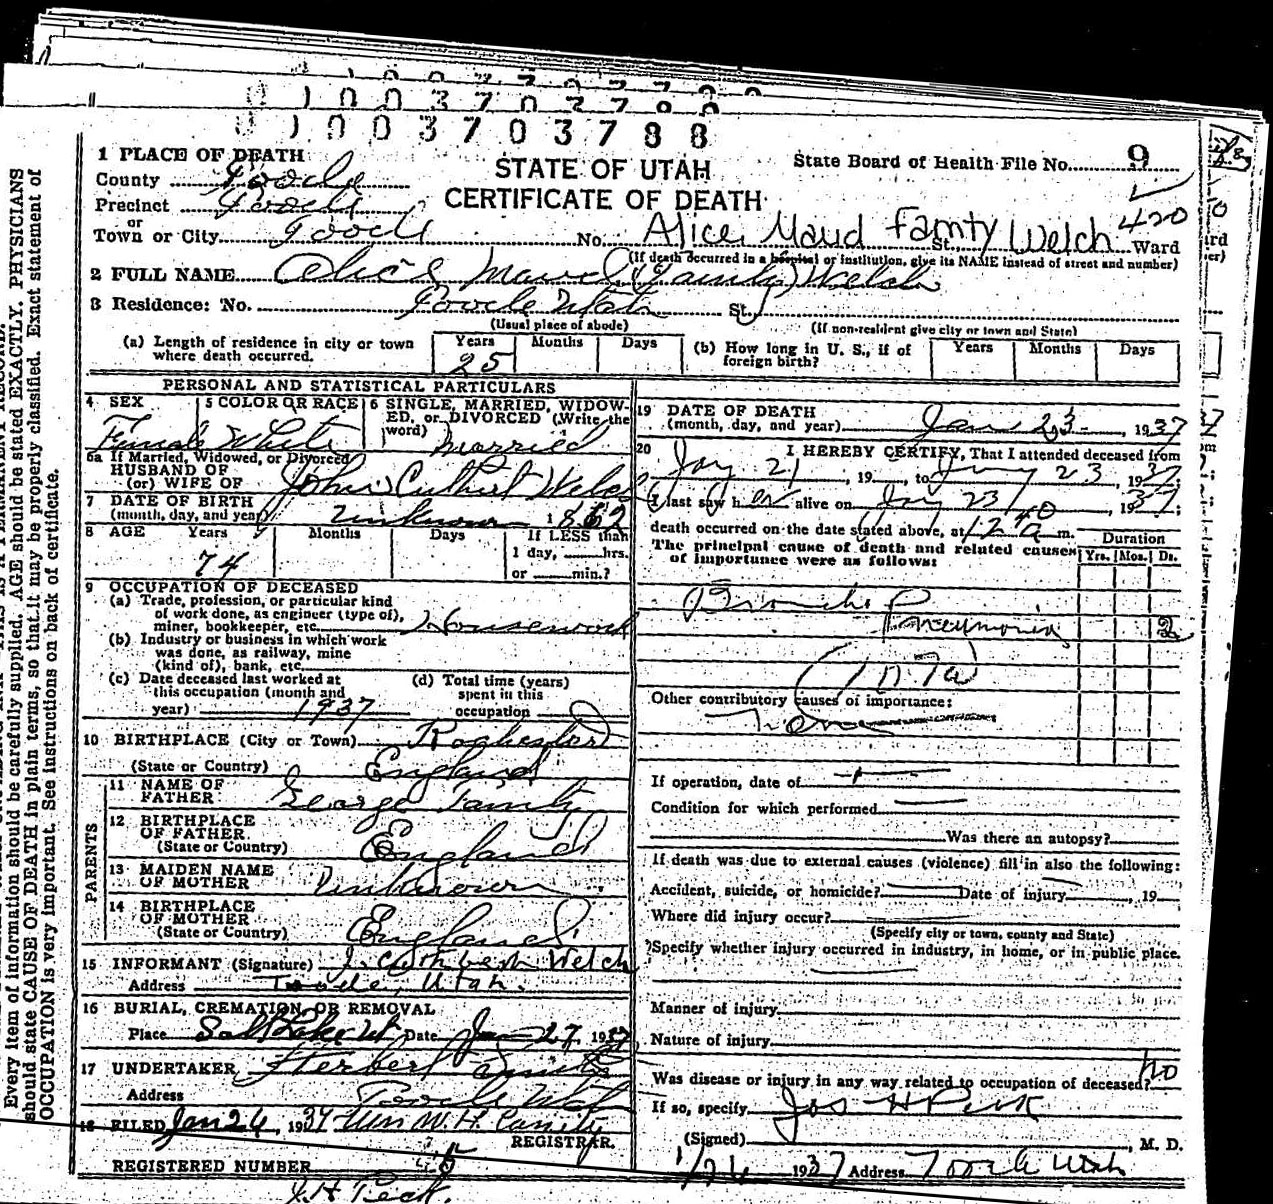 1003703788
1 PLACE OF DEATH
County Tooele
Precinct Tooele
or
Town or City Tooele No. St., Ward
STATE OF UTAH
CERTIFICATE OF DEATH
State Board of Health File No. 9
420
Alice Maud Famty Welch
(If death occurred in a hospital or institution, give its NAME instead of street and number)
2 FULL NAME Alice Maud (Famty) Welch
3 Residence: No. Tooele Utah St.
(Usual place of abode)
(If non-resident give city or town and State)
(a) Length of residence in city or town where death occurred. Years 25 Months Days
(b) How long in U. S., if of foreign birth? Years Months Days
PERSONAL AND STATISTICAL PARTICULARS
4 SEX Female
5 COLOR OR RACE White
6 SINGLE, MARRIED, WIDOWED, or DIVORCED (Write the word) Married
6a If Married, Widowed, or Divorced
HUSBAND OF
(or) WIFE OF John Cuthbert Welch
7 DATE OF BIRTH
(month, day, and year) Unknown 1862
8 AGE Years 74 Months Days
If LESS than
1 day, hrs.
or min.?
9 OCCUPATION OF DECEASED
(a) Trade, profession, or particular kind
of work done, as engineer (type of),
miner, bookkeeper, etc. Housework
(b) Industry or business in which work
was done, as railway, mine
(kind of), bank, etc.
(c) Date deceased last worked at
this occupation (month and
year) 1937
(d) Total time (years)
spent in this
occupation
10 BIRTHPLACE (City or Town) Rochester
(State or Country) England
PARENTS
11 NAME OF
FATHER George Famty
12 BIRTHPLACE
OF FATHER
(State or Country) England
13 MAIDEN NAME
OF MOTHER Unknown
14 BIRTHPLACE
OF MOTHER
(State or Country) England
15 INFORMANT (Signature) J. Cuthbert Welch
Address Tooele, Utah.
16 BURIAL, CREMATION, OR REMOVAL
Place Salt Lake Ut Date Jan 27 1937
17 UNDERTAKER Herbert
Address Tooele Utah
18 FILED Jan 26, 1937 Mrs W. H.
REGISTRAR.
REGISTERED NUMBER 5
J. H. Peck.
19 DATE OF DEATH
(month, day, and year) Jan 23 1937
20 I HEREBY CERTIFY, That I attended deceased from
Jan 21, 19 to Jan 23, 1937;
I last saw her alive on Jan 23, 1937;
death occurred on the date stated above, at 12 a m.
The principal cause of death and related causes
of importance were as follows:
Duration
Yrs. Mos. Ds.
Broncho
Pneumonia 2
107a
Other contributory causes of importance:
None
If operation, date of
Condition for which performed
Was there an autopsy?
If death was due to external causes (violence) fill in also the following:
Accident, suicide, or homicide? Date of injury , 19
Where did injury occur?
(Specify city or town, county and State)
Specify whether injury occurred in industry, in home, or in public place.
Manner of injury
Nature of injury
Was disease or injury in any way related to occupation of deceased? no
If so, specify
(Signed) Jos H Peck M. D.
1/26 1937 Address Tooele Utah
Every item of information should be carefully supplied. AGE should be stated EXACTLY. PHYSICIANS
should state CAUSE OF DEATH in plain terms, so that it may be properly classified. Exact statement of
OCCUPATION is very important. See instructions on back of certificate.